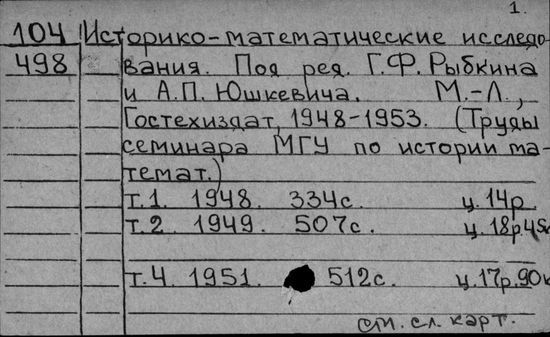 1.
104 Историко-математические исследо-
498 вания. Под ред. Г.Ф. Рыбкина
и А.П. Юшкевича. М.-Л.,
Гостехиздат, 1948-1953. (Труды
семинара МГУ по истории ма-
темат.)
т.1. 1948. 334с. ц.14р.
т.2. 1949. 507с. ц.18р.45к
т.4. 1951. 512с. ц.17р.90к
см. сл. карт.